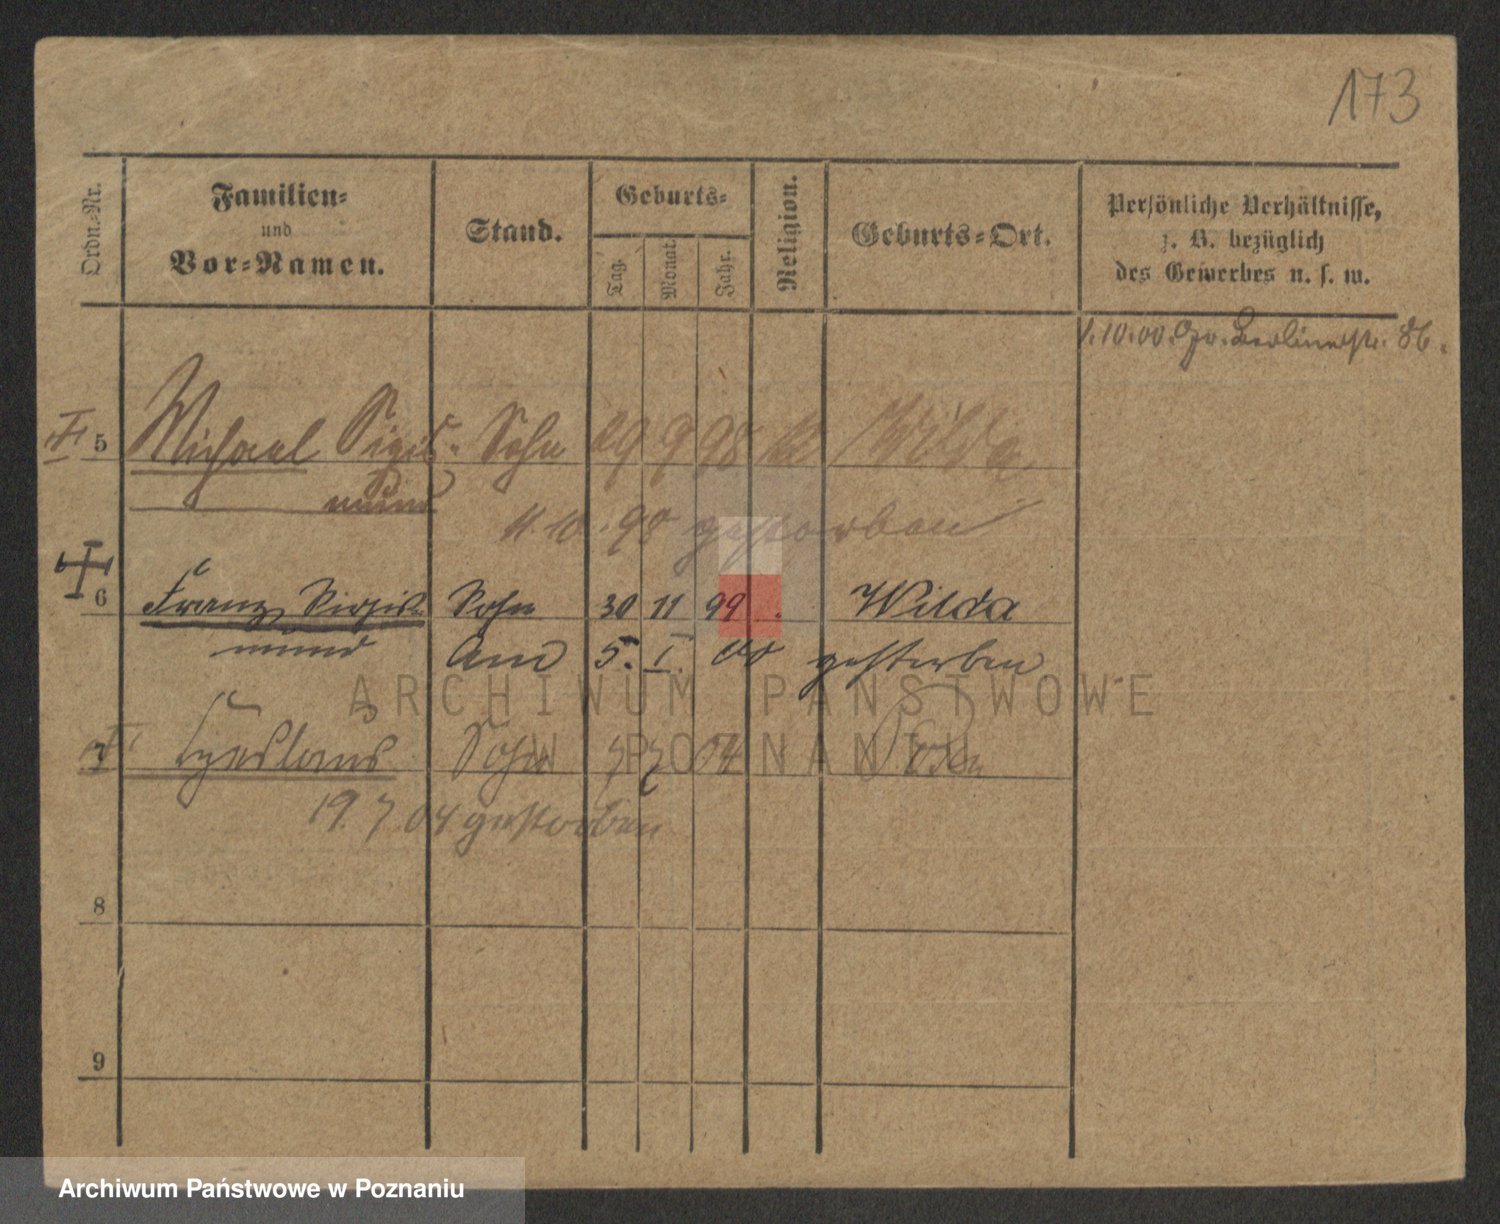 173
Ordn.-Nr.
Familien-
und
Vor-Namen.
Stand.
Geburts-
Tag.
Monat.
Jahr.
Religion.
Geburts-Ort.
Persönliche Verhältnisse,
z. B. bezüglich
des Gewerbes u. s. w.
1.10.00. Gr. Berlinerstr. 86.
5 Michael Sigis- Sohn 29 9 98 k Wilda
mund
11.10.98 gestorben
6 Franz Sigis- Sohn 30 11 99 Wilda
mund Am 5. I. 00 gestorben
ARCHIWUM PAŃSTWOWE
W POZNANIU
7 Czeslaus Sohn 7 7 04
19.7.04 gestorben
8
9
Archiwum Państwowe w Poznaniu